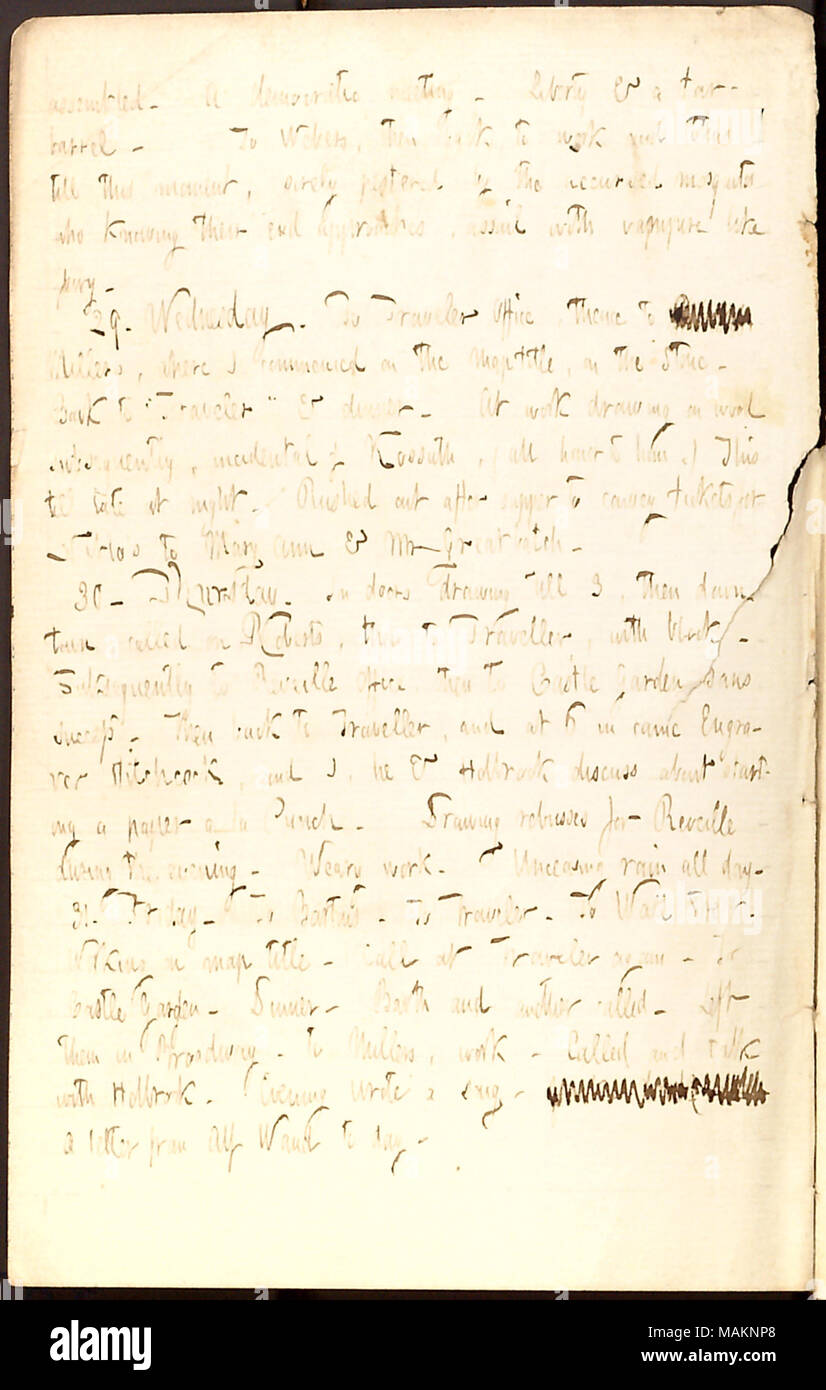 assembled - A democratic meeting - Liberty & a tar-
barrel - To Webers, then back to work and thus
till this moment, sorely pestered by the accursed mosquitos
who knowing their end approaches, assail with vampyre like
fury -
29. Wednesday. To Traveler Office, thence to
Millers, where I commenced on the map title, on the Stone -
Back to "Traveler" & dinner - At work drawing on wood
subsequently, incidental of Kossuth, (all honor to him.) This
till late at night. Rushed out after supper to convey tickets for
to Mary Ann & Mr Greatbatch -
30 - Thursday. In doors drawing till 3, then down
town, called on Roberts, then to Traveller, with block -
Subsequently to Reveille Office, then to Castle Garden, sans
success - Then back to Traveller, and at 6 in came Engra-
ver Hitchcock, and I, he & Holbrook discuss about start-
ing a paper a la Punch - Drawing rebusses for Reveille
during the evening - Weary work. Unceasing rain all day -
31. Friday - To - To Traveler - To Wall Street.
Working on map title - Call at Traveler again - To
Castle Garden - Dinner - Barth and another called - Left
them in Broadway - To Millers, work - Called and talk
with Holbrook. Evening wrote a song -
a letter from Alf Waud to day -
alamy
Image ID: MAKNP8
www.alamy.com